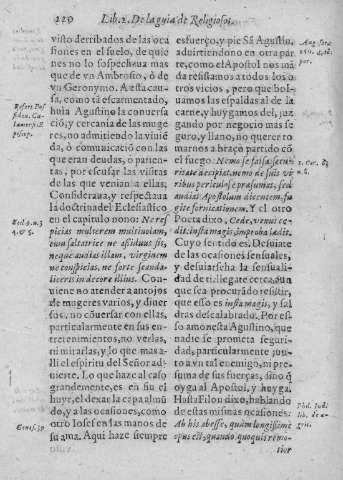 220 Lib. 2. De la guia de Religiosos.
visto derribados de las oca
siones en el suelo, de quie
nes no lo sospechaua mas
que de vn Ambrosio, ò de
vn Geronymo. A esta cau-
sa, como tã escarmentado,
huìa Agustino la conuersa
ciõ, y cercania de las muge
res, no admitiendo la viuiẽ
da, ò comunicaciõ con las
que eran deudas, ò parien-
tas, por escusar las visitas
de las que venian a ellas;
Consideraua, y respectaua
la doctrina del Eclesiastico
en el capitulo nono: Ne res
picias mulierem multiuolam,
cum saltatrice ne assiduus sis,
neque audias illam, virginem
ne conspicias, ne forte scanda-
liceris in decore illius. Con-
uiene no atender a antojos
de mugeres varios, y diuer
sos, no cõuersar con ellas,
particularmente en sus en-
tretenimientos, no verlas,
ni mirarlas, y lo que mas a-
lli el espiritu del Señor ad-
uierte. Lo que haze al caso
grandemente, es en fin el
huyr, el dexar la capa al mũ
do, y a las ocasiones, como
otro Iosef en las manos de
su ama. Aqui haze siempre
Eccl. 9. n. 3
4. & 5.
Genes. 39
esfuerço, y pie Sã Agustin,
aduirtiendo en otra par-
te, como el Apostol nos mã
da resistamos a todos los o-
tros vicios, pero que bol-
uamos las espaldas al de la
carne, y huygamos del, juz
gando por negocio mas se-
guro, y llano, no querer to-
marnos a braço partido cõ
el fuego. Nemo se falsa secu-
ritate decipiat, nemo de suis vi
ribus periculose præsumat, sed
audiat Apostolum dicentem, fu
gite fornicationem. Y el otro
Poeta dixo, Cede,
Cuyo sentido es. Desuiate
de las ocasiones sensuales,
y desuiarseha la sensuali-
dad de ti: llegate cerca, aun
que sea procurãdo resistir,
que esso es insta magis, y sal
dras descalabrado. Por es-
so amonesta Agustino, que
nadie se prometa seguri-
dad, particularmente jun-
to a vn tal enemigo, ni pre-
suma de sus fuerças, sino q̃
oyga al Apostol, y huyga.
Hasta Filon dixo, hablando
de estas mismas ocasiones:
Ab his abesse, quàm longissimè
opus est, quando quoquis remo-
tior
1. Cor. 6.